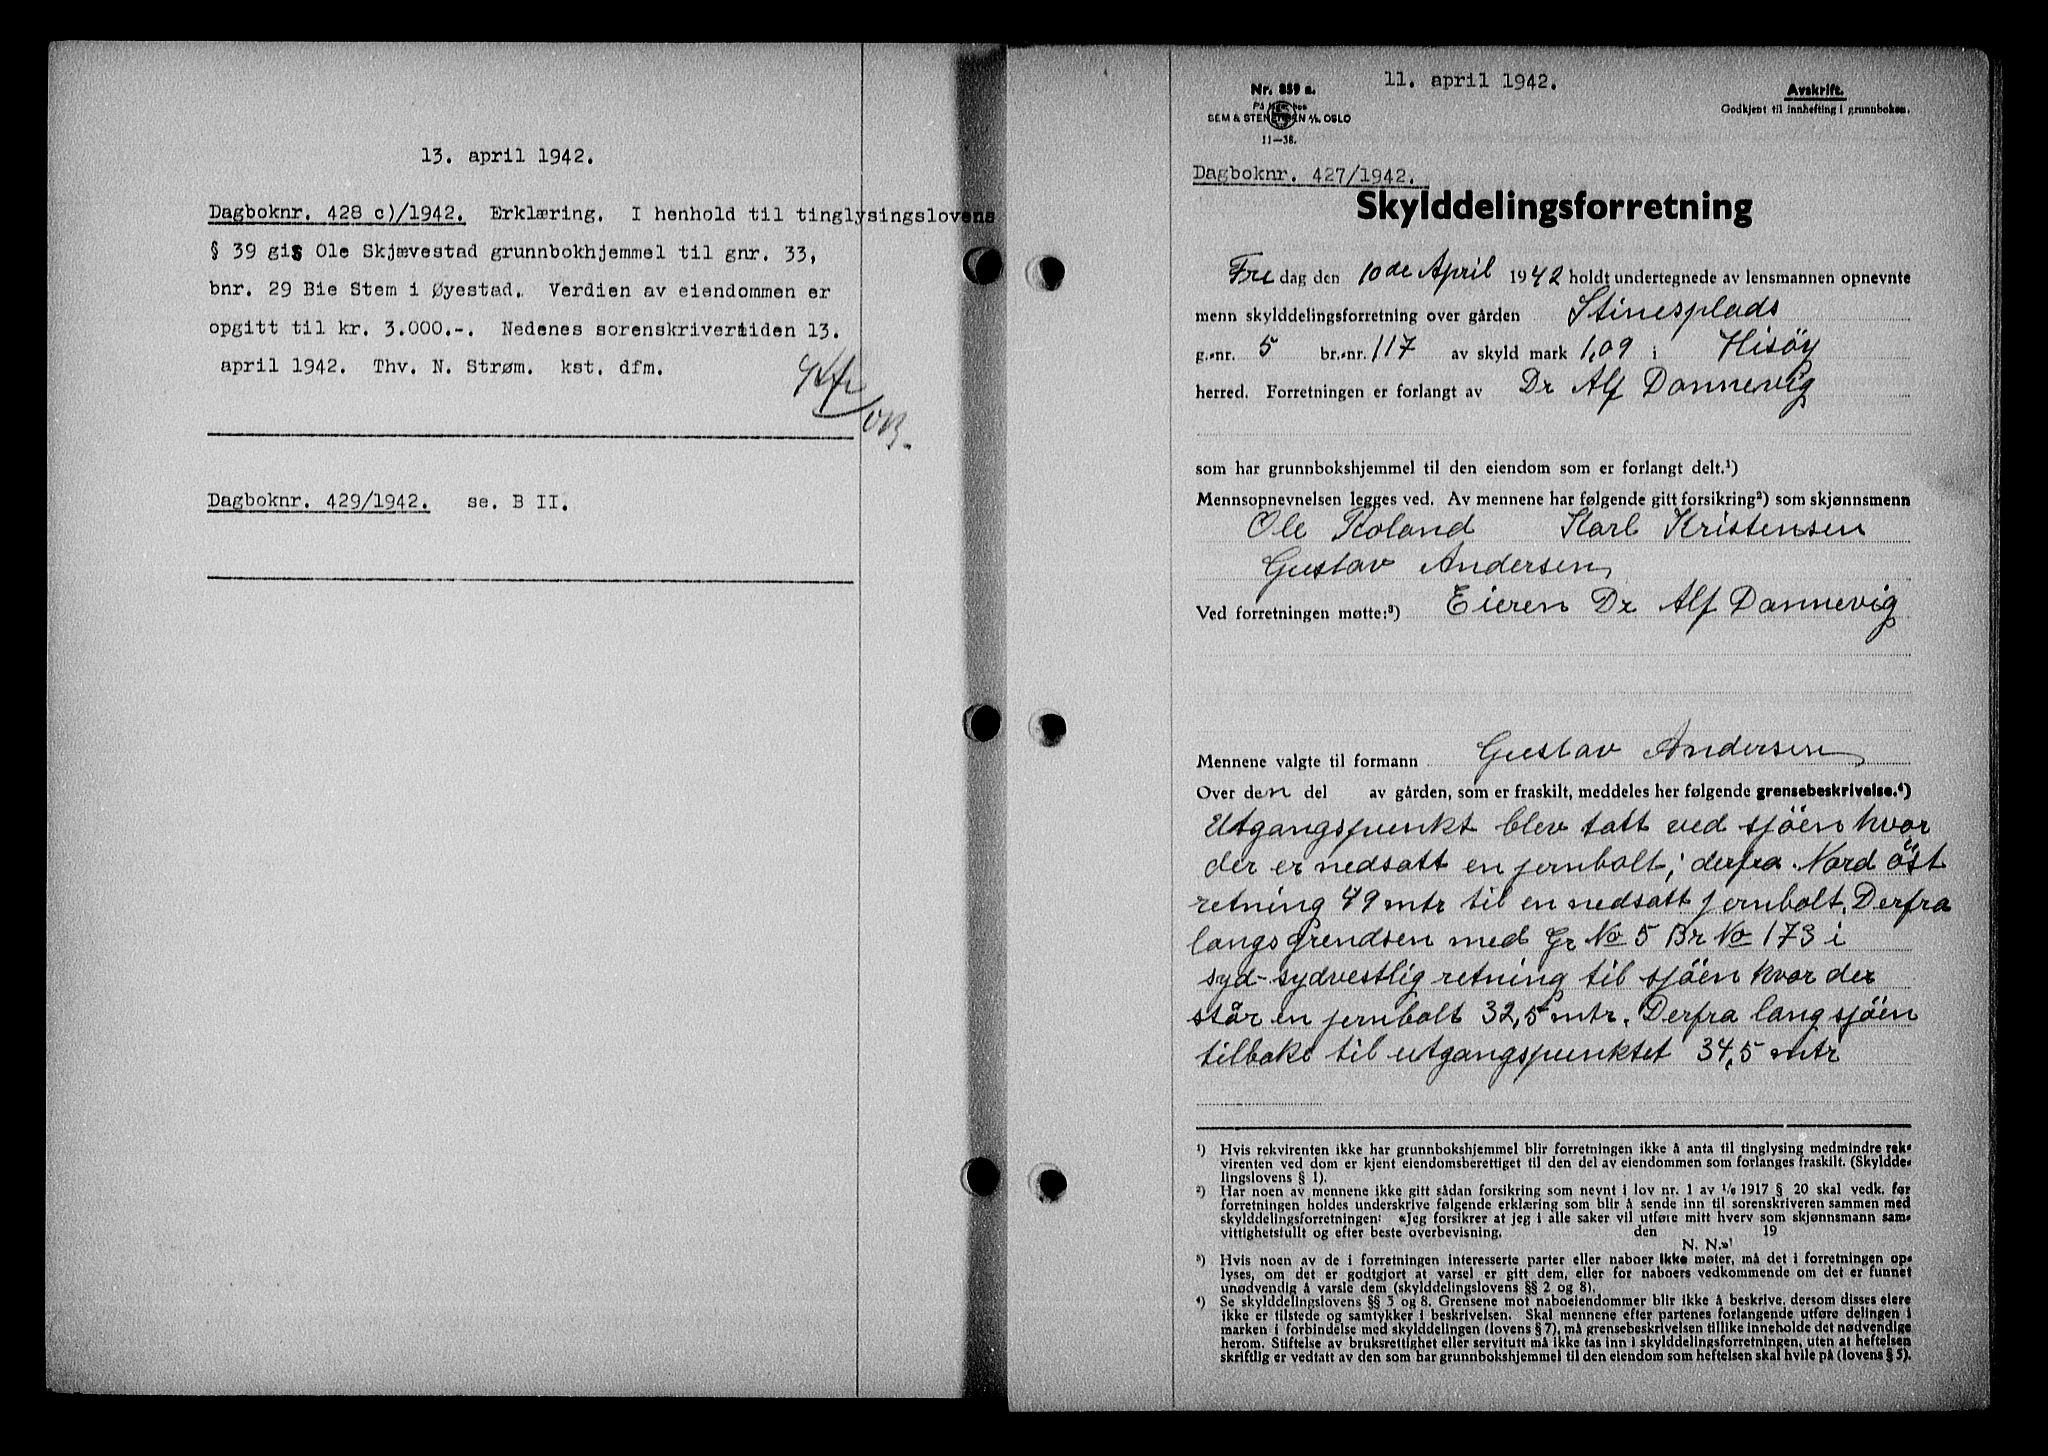 13. april 1942.
Dagboknr. 428 c)/1942. Erklæring. I henhold til tinglysingslovens
§ 39 gis Ole Skjævestad grunnbokhjemmel til gnr. 33,
bnr. 29 Bie Stem i Øyestad. Verdien av eiendommen er
opgitt til kr. 3.000.-. Nedenes sorenskrivertiden 13.
april 1942. Thv. N. Strøm. kst. dfm.
Dagboknr. 429/1942. se. B II.
11. april 1942.
Nr. 859 a.
På lager hos
SEM & STENERSEN A/S OSLO
11—38.
Avskrift.
Godkjent til innhefting i grunnboken.
Dagboknr. 427/1942.
Skylddelingsforretning
Fre dag den 10de April 1942 holdt undertegnede av lensmannen opnevnte
menn skylddelingsforretning over gården Stinesplads
g.-nr. 5 br.-nr. 117 av skyld mark 1,09 i Hisöy
herred. Forretningen er forlangt av Dr Alf Dannevig
som har grunnbokshjemmel til den eiendom som er forlangt delt.¹)
Mennsopnevnelsen legges ved. Av mennene har følgende gitt forsikring²) som skjønnsmenn
Ole Roland Karl Kristensen
Gustav Andersen
Ved forretningen møtte:³) Eieren Dr Alf Dannevig
Mennene valgte til formann Gustav Andersen
Over den del av gården, som er fraskilt, meddeles her følgende grensebeskrivelse.⁴)
Utgangspunkt blev tatt ved sjöen hvor
der er nedsatt en jernbolt; derfra Nord öst
retning 49 mtr til en nedsatt jernbolt. Derfra
langs grendsen med Gr No 5 Br No 173 i
syd-sydvestlig retning til sjöen hvor der
står en jernbolt 32,5 mtr. Derfra lang sjöen
tilbake til utgangspunktet 34,5 mtr
¹) Hvis rekvirenten ikke har grunnbokshjemmel blir forretningen ikke å anta til tinglysing medmindre rek-
virenten ved dom er kjent eiendomsberettiget til den del av eiendommen som forlanges fraskilt. (Skyldde-
lingslovens § 1).
²) Har noen av mennene ikke gitt sådan forsikring som nevnt i lov nr. 1 av 1/6 1917 § 20 skal vedk. før
forretningen holdes underskrive følgende erklæring som blir å sende inn til sorenskriveren sammen med
skylddelingsforretningen: «Jeg forsikrer at jeg i alle saker vil utføre mitt hverv som skjønnsmann sam-
vittighetsfullt og efter beste overbevisning. den 19
N. N.»
³) Hvis noen av de i forretningen interesserte parter eller naboer ikke møter, må det i forretningen op-
lyses, om det er godtgjort at varsel er gitt dem, eller for naboers vedkommende om det er funnet
unødvendig å varsle dem (skylddelingslovens §§ 2 og 8).
⁴) Se skylddelingslovens §§ 3 og 8. Grensene mot naboeiendommer blir ikke å beskrive, dersom disses eiere
ikke er tilstede og samtykker i beskrivelsen. Skal mennene efter partenes forlangende utføre delingen i
marken i forbindelse med skylddelingen (lovens § 7), må grensebeskrivelsen tillike inneholde det nødvendige
herom. Stiftelse av bruksrettighet eller servitutt må ikke tas inn i skylddelingsforretningen, uten at heftelsen
skriftlig er vedtatt av den som har grunnbokshjemmel til den eiendom som heftelsen skal hvile på (lovens § 5).